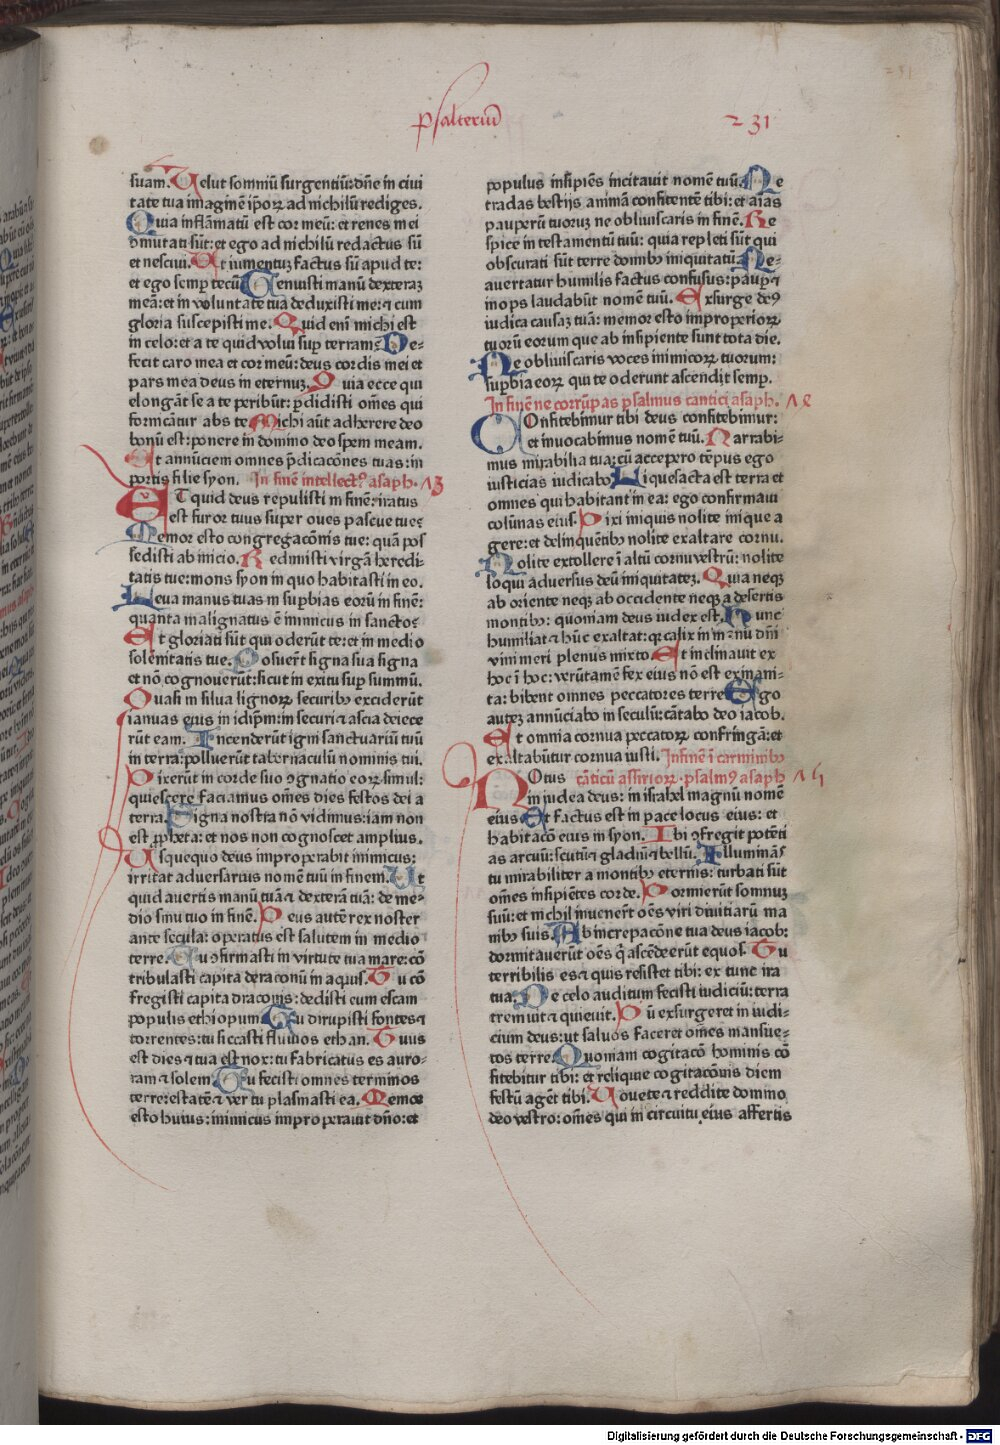 psalteriū
231
suam. Uelut somniū surgentiū: dn̄e in ciui
tate tua imaginē ip̄oꝝ ad nichilū rediges.
Quia inflamatū est cor meū: et renes mei
ꝯmutati sūt: et ego ad nichilū redactus sū
et nesciui. Ut iumentuꝫ factus sū apud te:
et ego semꝑ tecū. Tenuisti manū dexteraꝫ
meā: et in voluntate tua deduxisti me: ⁊ cum
gloria suscepisti me. Quid eni michi est
in celo: et a te quid volui suꝑ terram. De-
fecit caro mea et cor meū: deus cordis mei et
pars mea deus in eternuꝫ. Quia ecce qui
elongāt se a te peribūt: ꝑdidisti om̄es qui
fornicātur abs te. Michi aūt adherere deo
bonū est: ponere in domino deo spem meam.
Et annūciem omnes p̄dicacōnes tuas: in
portis filie syon. In finē intellectꝰ asaph. 73
UT quid deus repulisti in finē: iratus
est furor tuus super oues pascue tue:
Memor esto congregacōnis tue: quā pos
sedisti ab inicio. Redimisti virgā heredi-
tatis tue: mons syon in quo habitasti in eo.
Leua manus tuas in suꝑbias eorū in finē:
quanta malignatus ē inimicus in sancto:
Et gloriati sūt qui oderūt te: et in medio
solēnitatis tue. Posuer̄t signa sua signa
et nō cognouerūt: sicut in exitu suꝑ summū.
Quasi in silua lignoꝝ securibꝰ exciderūt
ianuas eius in idip̄m: in securi ⁊ ascia deiece
rūt eam. Incenderūt igni sanctuariū tuū
in terra: polluerūt tabernaculū nominis tui.
Dixerūt in corde suo ꝯgnatio eoꝝ simul:
quiescere faciamus om̄es dies festos dei a
terra. Signa nostra nō vidimus: iam non
est ꝓpheta: et nos non cognoscet amplius.
Usquequo deus improperabit inimicus:
irritat aduersarius nomē tuū in finem. Ut
quid auertis manū tuā ⁊ dexterā tuā: de me-
dio sinu tuo in finē. Deus autē rex noster
ante secula: operatus est salutem in medio
terre. Tu ꝯfirmasti in virtute tua mare: cō
tribulasti capita draconū in aquis. Tu cō
fregisti capita draconis: dedisti eum escam
populis ethiopum. Tu dirupisti fontes ⁊
torrentes: tu siccasti fluuios ethan. Tuus
est dies ⁊ tua est nox: tu fabricatus es auro-
ram ⁊ solem. Tu fecisti omnes terminos
terre: estatē ⁊ ver tu plasmasti ea. Memor
esto huius: inimicus improperauit dn̄o: et
populus insipiēs incitauit nomē tuū. Ne
tradas bestijs animā confitentē tibi: et aīas
pauperū tuoruꝫ ne obliuiscaris in finē. Re
spice in testamentū tuū: quia repleti sūt qui
obscurati sūt terre domibꝰ iniquitatū. Ne-
auertatur humilis factus confusus: pauꝑ ⁊
inops laudabūt nomē tuū. Exsurge deꝰ
iudica causaꝫ tuā: memor esto improperioꝝ
tuorū eorum que ab insipiente sunt tota die.
Ne obliuiscaris voces inimicoꝝ tuorum:
suꝑbia eoꝝ qui te oderunt ascendit semꝑ.
In finē ne corrūpas psalmus cantici asaph. 74
COnfitebimur tibi deus confitebimur:
et inuocabimus nomē tuū. Narrabi-
mus mirabilia tua: cū accepero tēpus ego
iusticias iudicabo. Liquefacta est terra et
omnes qui habitant in ea: ego confirmaui
colūnas eius. Dixi iniquis nolite inique a
gere: et delinquētibꝰ nolite exaltare cornu.
Nolite extollere ī altū cornu vestrū: nolite
loqui aduersus deū iniquitateꝫ. Quia neqꝫ
ab oriente neqꝫ ab occidente neqꝫ a desertis
montibꝰ: quoniam deus iudex est. Hunc
humiliat ⁊ hūc exaltat: qꝛ calix in manu dn̄i
vini meri plenus mixto. Et inclinauit ex
hoc ī hoc: verūtamē fex eius nō est exinani-
ta: bibent omnes peccatores terre. Ego
auteꝫ annūciabo in seculū: cātabo deo iacob.
Et omnia cornua peccatoꝝ confringā: et
exaltabūtur cornua iusti. In finē ī carminibꝰ
NOtus cāticū assirioꝝ · psalmꝰ asaph 75
in iudea deus: in israhel magnū nomē
eius. Et factus est in pace locus eius: et
habitacō eius in syon. Ibi ꝯfregit potēti
as arcuū: scutū ⁊ gladiū ⁊ bellū. Illuminās
tu mirabiliter a montibꝰ eternis: turbati sūt
om̄es insipiētes corde. Dormierūt somnuꝫ
suū: et nichil inuener̄t oēs viri diuitiarū ma
nibꝰ suis. Ab increpacōne tua deus iacob:
dormitauerūt oēs q̄ ascēderūt equos. Tu
terribilis es ⁊ quis resistet tibi: ex tunc ira
tua. De celo auditum fecisti iudiciū: terra
tremuit ⁊ quieuit. Dū exsurgeret in iudi-
cium deus: ut saluos faceret om̄es mansue-
tos terre. Quoniam cogitacō hominis cō
fitebitur tibi: et reliquie cogitacōnis diem
festū agēt tibi. Uouete ⁊ reddite domino
deo vestro: om̄es qui in circuitu eius affertis
Digitalisierung gefördert durch die Deutsche Forschungsgemeinschaft - DFG